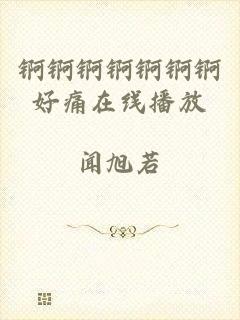 锕锕锕锕锕锕锕
好痛在线播放
闻旭若